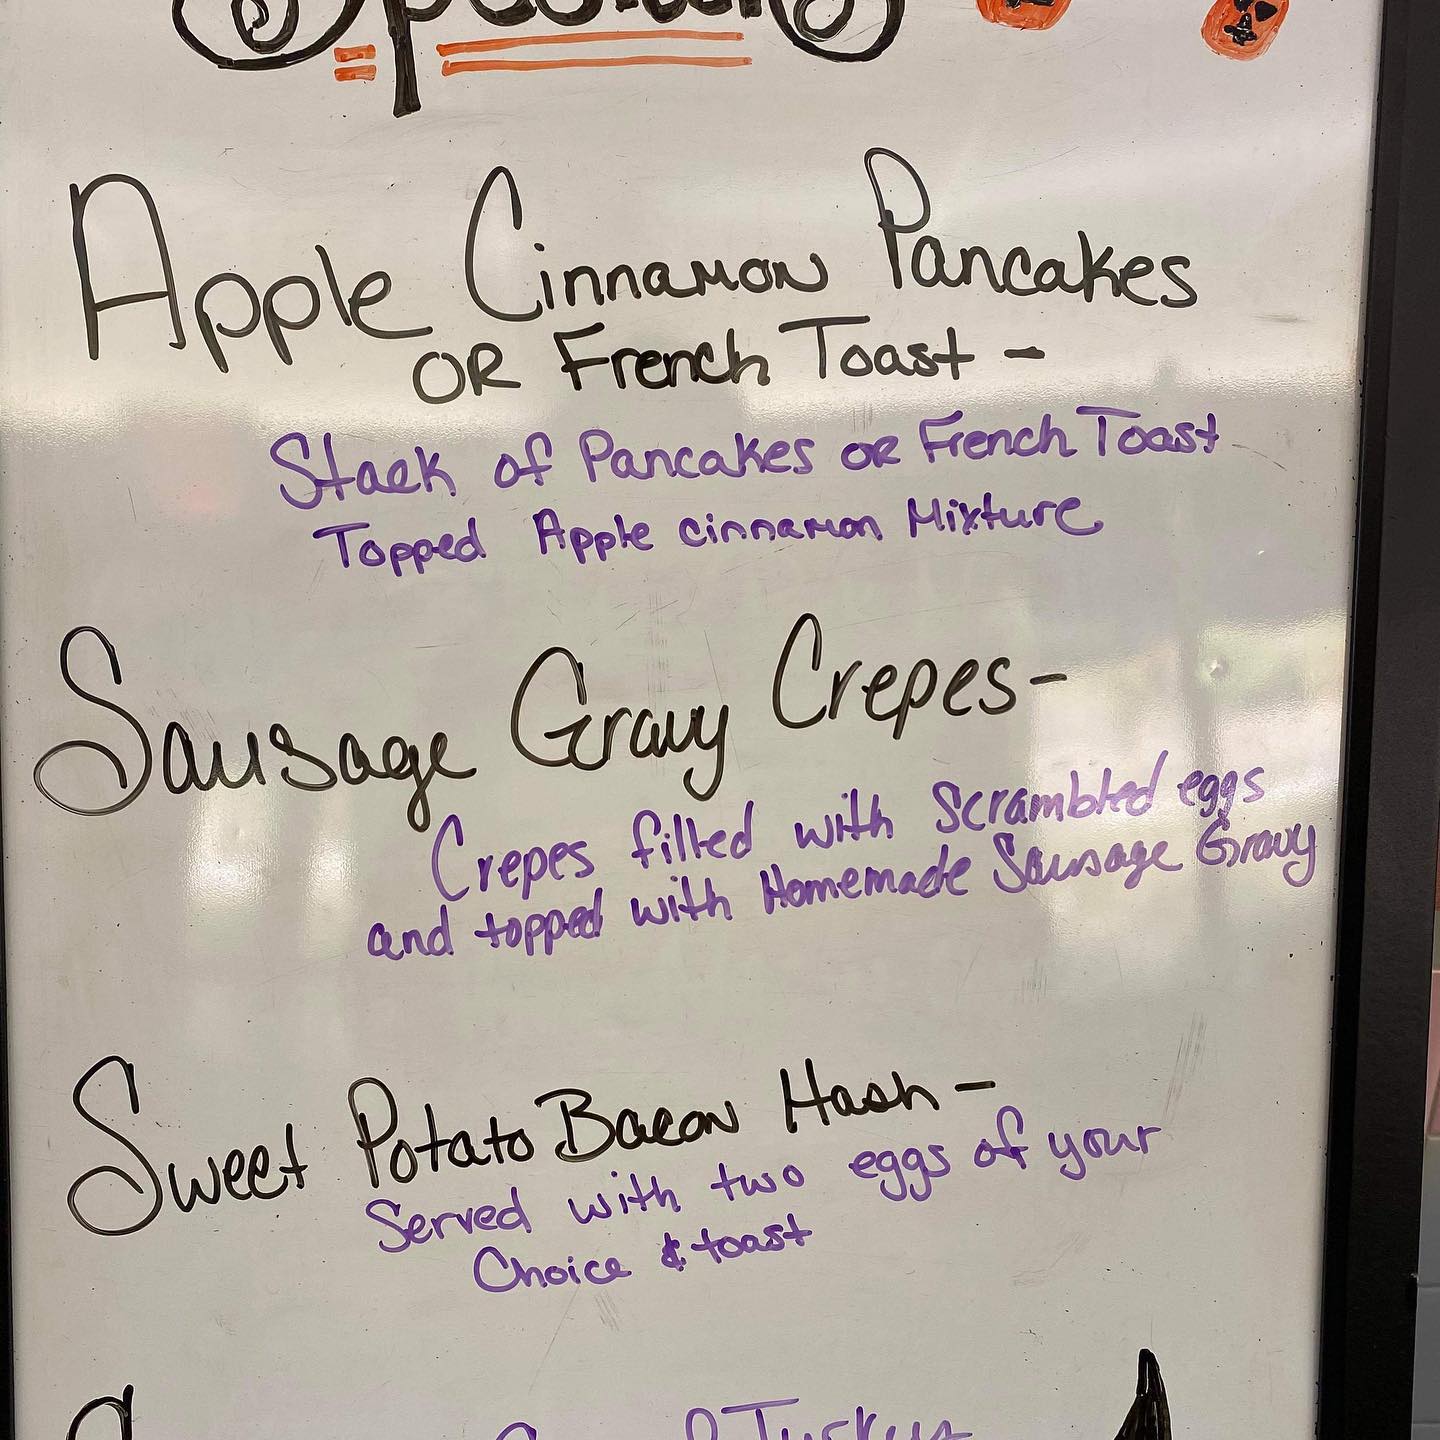 Apple Cinnamon Pancakes
OR French Toast -
Stack of Pancakes OR French Toast
Topped Apple cinnamon Mixture
Sausage Gravy Crepes-
Crepes filled with Scrambled eggs
and topped with Homemade Sausage Gravy
Sweet Potato Bacon Hash -
Served with two eggs of your
Choice & toast
Turkey